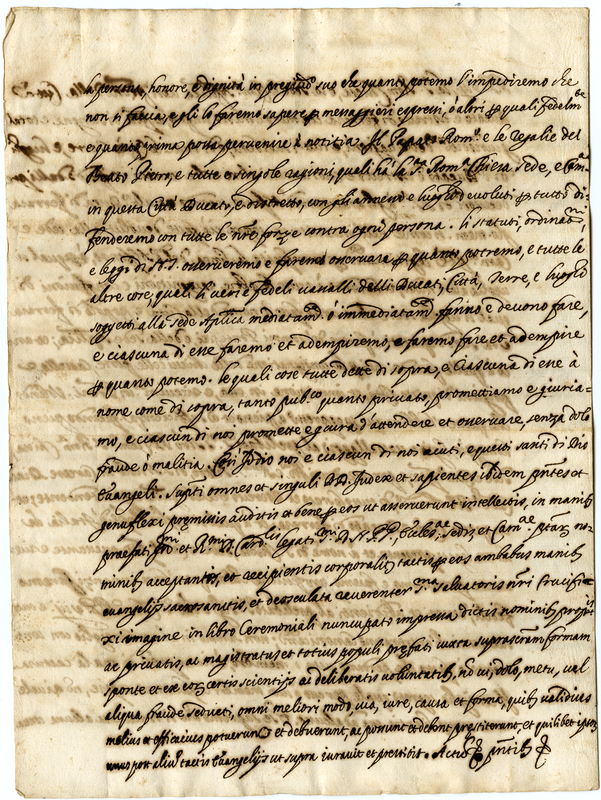 la persona, honore, e dignità in pregiud.o suo che quanto potemo l'impediremo che
non si faccia, e gli lo faremo sapere p messaggieri espressi, ò altri p quali fedelm.te
e quanto prima possa pervenire à notitia. Il Papato Rom.o e le regalie del
Beato Pietro, e tutte e singole ragioni, quali hà la S. Rom.a Chiesa sede, e Cam.a
in questa Città Ducato, e distretto, con gli annessi e luoghi devoluti p tutto di-
fenderemo con tutte le nře forze contra ogni persona. li statuti, ordinat.ni,
e leggi di N. S. osserveremo e faremo osservare p quanto potremo, e tutte le
altre cose, quali li veri e fedeli vassalli delli Ducati, Città, Terre, e luoghi
soggetti alla sede Aplica mediatam.te ò immediatam.te fanno e devono fare,
e ciascuna di esse faremo et adempiremo, e faremo fare et adempire
p quanto potemo. le quali cose tutte dette di sopra, e ciascuna di esse à
nome come di sopra, tanto pub.co quanto privato, promettiamo e giuria-
mo, e ciascun di noi promette e giura d'attendere et osservare, senza dolo
fraude ò malitia. Così Iddio noi e ciascun di noi aiuti, e questi santi di Dio
Evangeli. Supti omnes et singuli DD. Judex et sapientes ibidem pntes et
genuflexi pmissis auditis et bene p eos ut asseruerunt intellectis, in manib
praefati Ill.mi et R.mi D. Card.lis legati S.mi D. N. PP., Eccles.ae Sedis et Cam.ae ptarz no-
minib acceptantis, et recipientis corporaliter tactis p eos ambabus manib
evangelijs sacrosanctis, et deosculata reverenter S.ma Salvatoris nri Crucifi-
xi imagine in libro Ceremoniali nuncupato impressa dictis nominib proprijs
ac privatis, ac magistratus et totius populi prefati iuxta suprascriptam formam
sponte et ex eorz certis scientijs ac deliberatis voluntatib, nō vi, dolo, metu, vel
aliqua fraude seducti, omni meliori modo via, iure, causa et forma, quib validius
melius et efficacius potuerunt et debuerunt, ac possunt et debent prestiterunt, et quilibet ipsorz
unus post aliū tactis Evangelijs ut supra iuravit et prestitit.